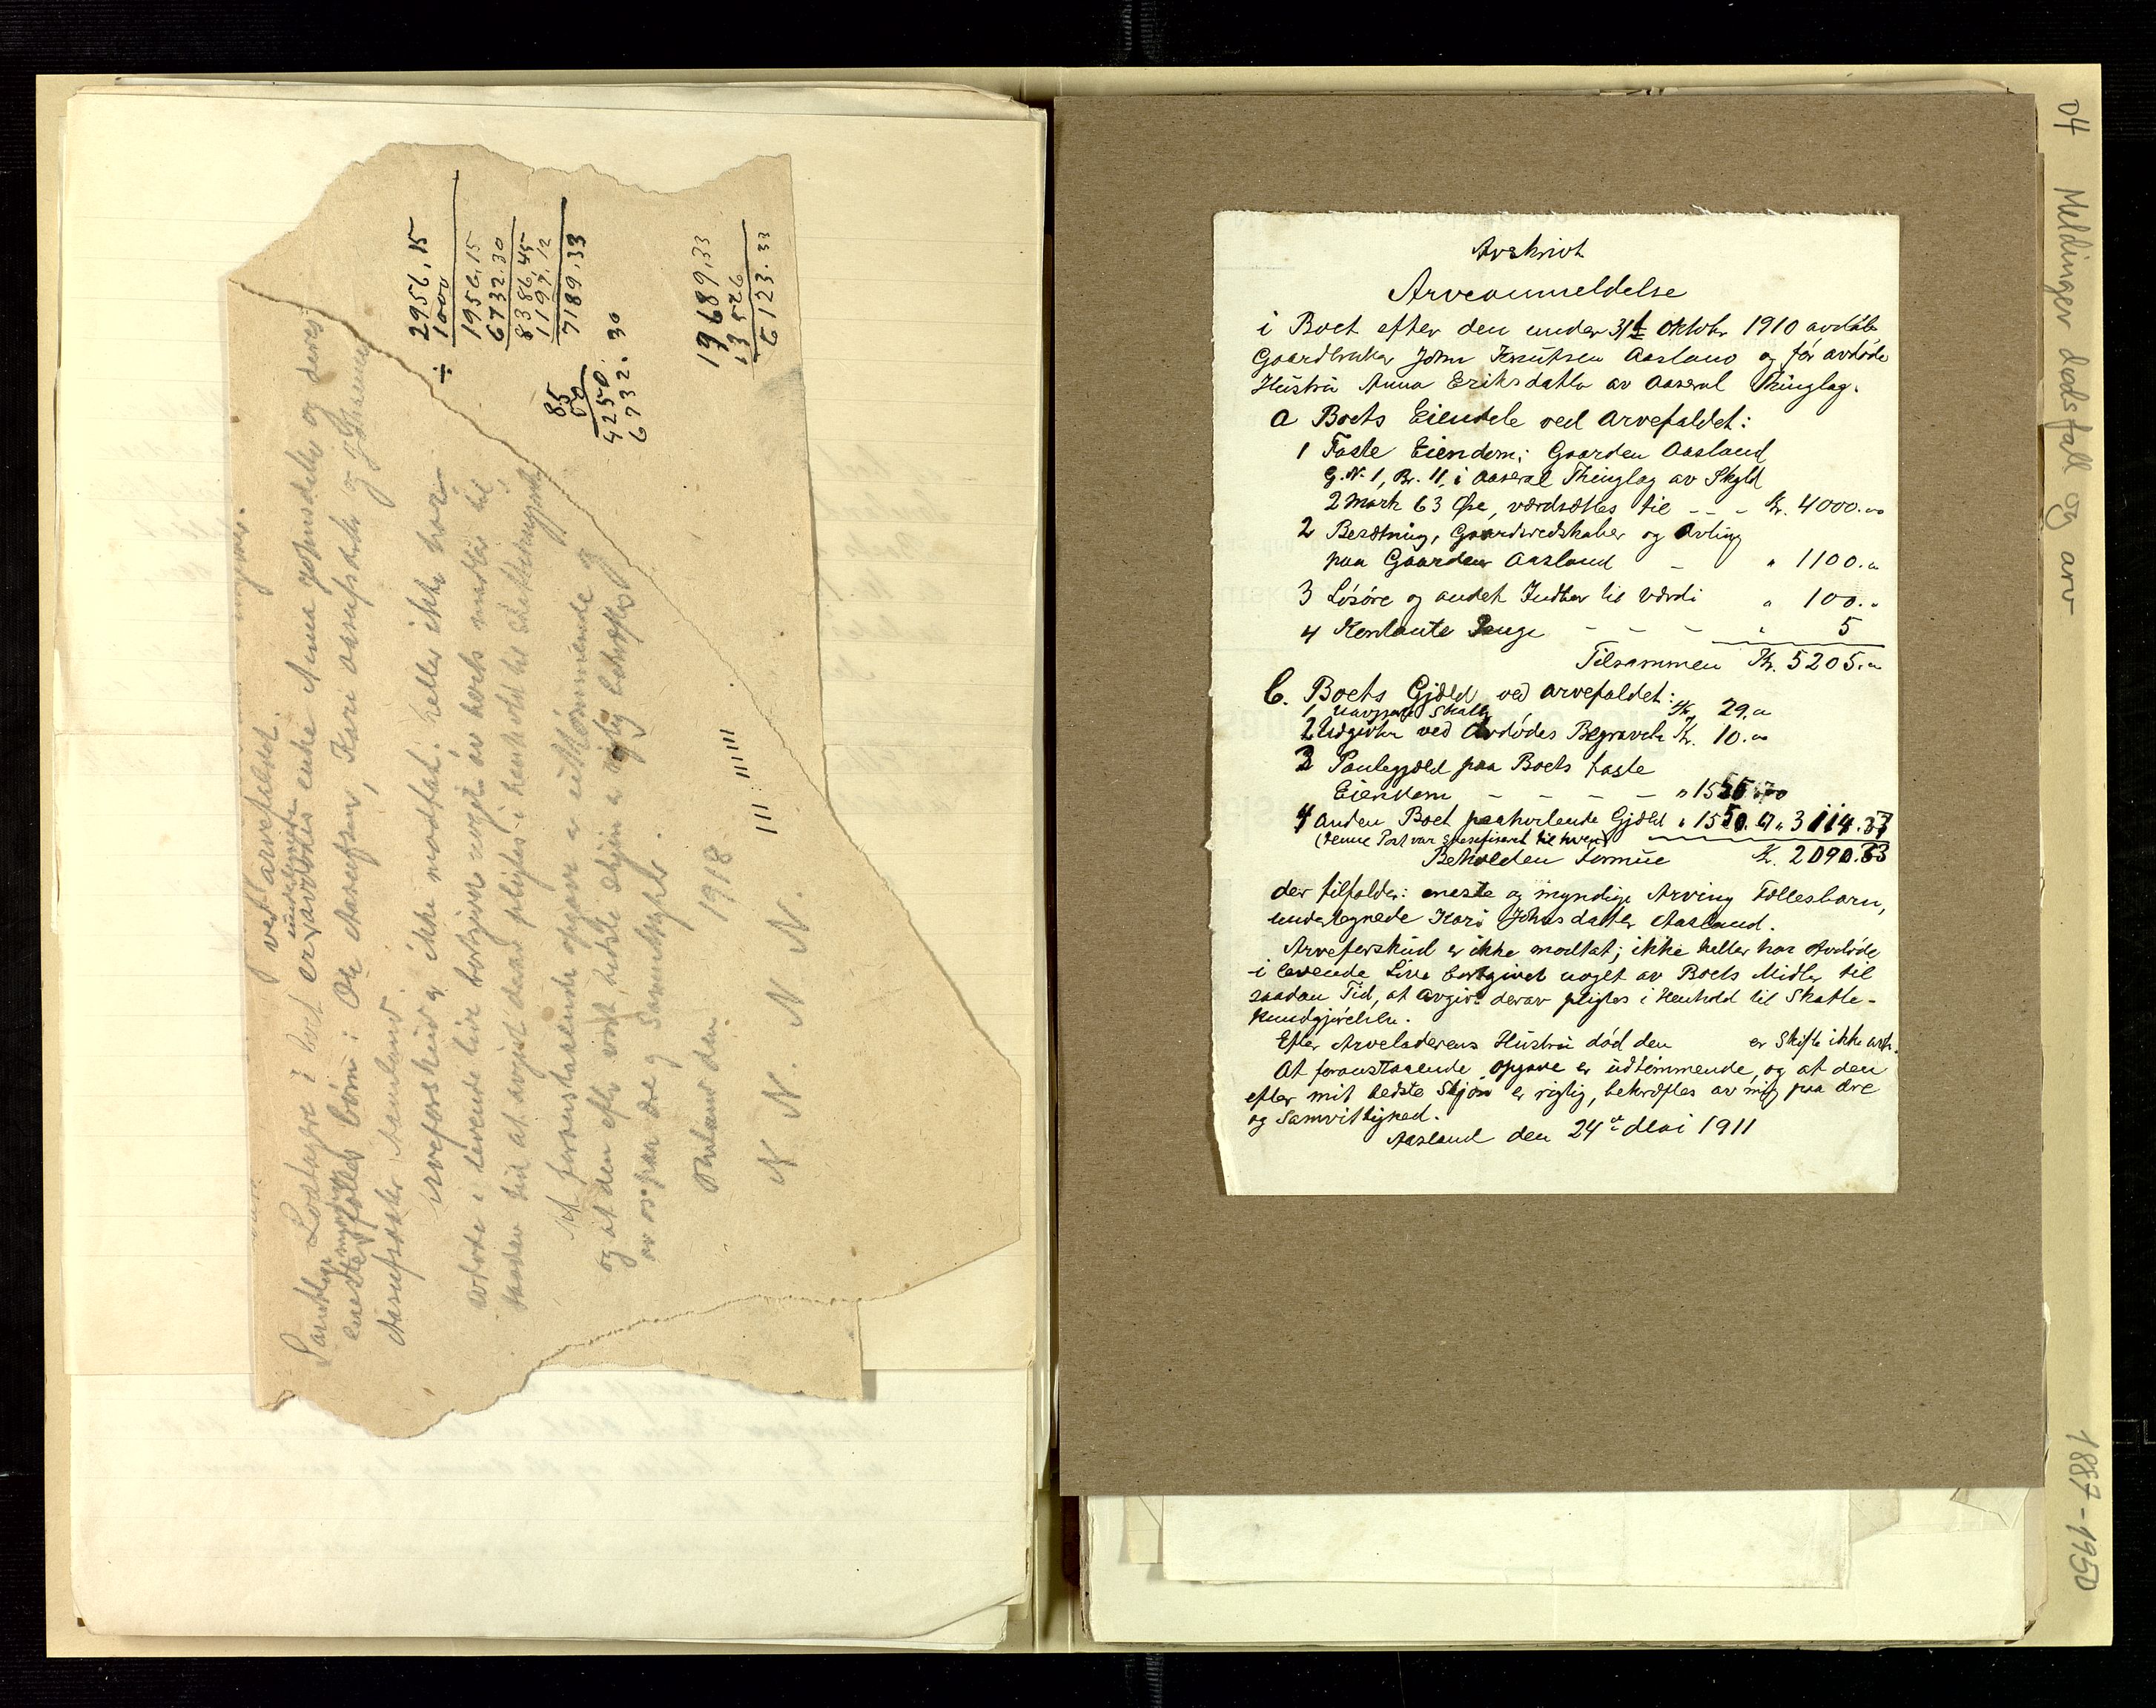 ved arvefaldet.
Samtlige Lodtagere i boet er avdødes undertegnede enke Anna Johnsdatter og deres
eneste myndige fælles børn: Ole Aasulfsen, Kari Aasulfsdatter og Tharane
Aasulfsdatter Aasland.
Arveforskud er ikke modtat. heller ikke har
avdøde i levende live bortgivet noget av boets midler til
saadan tid at avgift derav pligtes i henhold til skattekundgj.
At foranstaaende opgave er uttømmende og
og at den efter vort bedste skjøn er rigtig bekræftes
av os paa ære og Samvittighet.
Aasland den 1918
N N. N N.
2956.15
÷ 1000
1956.15
6732.30
8386.45
1197.12
7189.33
85
50
4250
6732.30
19689.33
13526
6123.33
Avskrivt
Arveanmeldelse
i Boet efter den under 31te Oktobr 1910 avdøde
Gaardbruker John Knutsen Aasland og før avdøde
Hustru Anna Eriksdatter av Aaseral Thinglag.
a Boets Eiendele ved Arvefaldet:
1 Faste Eiendom: Gaarden Aasland
G.N. 1, Br. 11, i Aaseral Thinglag av Skyld
2 Mark 63 Øre, værdsættes til - - - Kr. 4000.00
2 Besætning, Gaardsredskaber og Avling
paa Gaarden Aasland - " 1100.00
3 Løsøre og andet Indbo til Værdi " 100.-
4 Kontante Penge - - - " 5
Tilsammen Kr. 5205.00
b. Boets Gjæld ved arvefaldet:
1 Uavgjort Skatt Kr. 29.00
2 Udgivter ved Avdødes Begravelse Kr. 10.00
3 Pantegjæld paa Boets faste
Eiendom - - - - "
4 Anden Boet paahvilende Gjæld " 1550.67 " 3114.37
(denne Post var spesifiseret til hvem)
Beholden formue Kr. 2090.63
der tilfalder: eneste og myndige Arving Fællesbarn,
undertegnede Kari Johnsdatter Aasland.
Arveforskud er ikke modtat; ikke heller har Avdøde
i levende Live bortgivet noget av Boets Midler til
saadan Tid, at avgivt derav pligtes i Henhold til Skatte-
kundgjørelsen.
Efter Arveladerens Hustru død den er Skifte ikke avh.
At foranstaaende opgave er udtømmende, og at den
efter mit bedste Skjøn er rigtig, bekræftes av mig paa ære
og Samvittighed.
Aasland den 24de Mai 1911
04 Meldinger dødsfall og arv
1887-1950